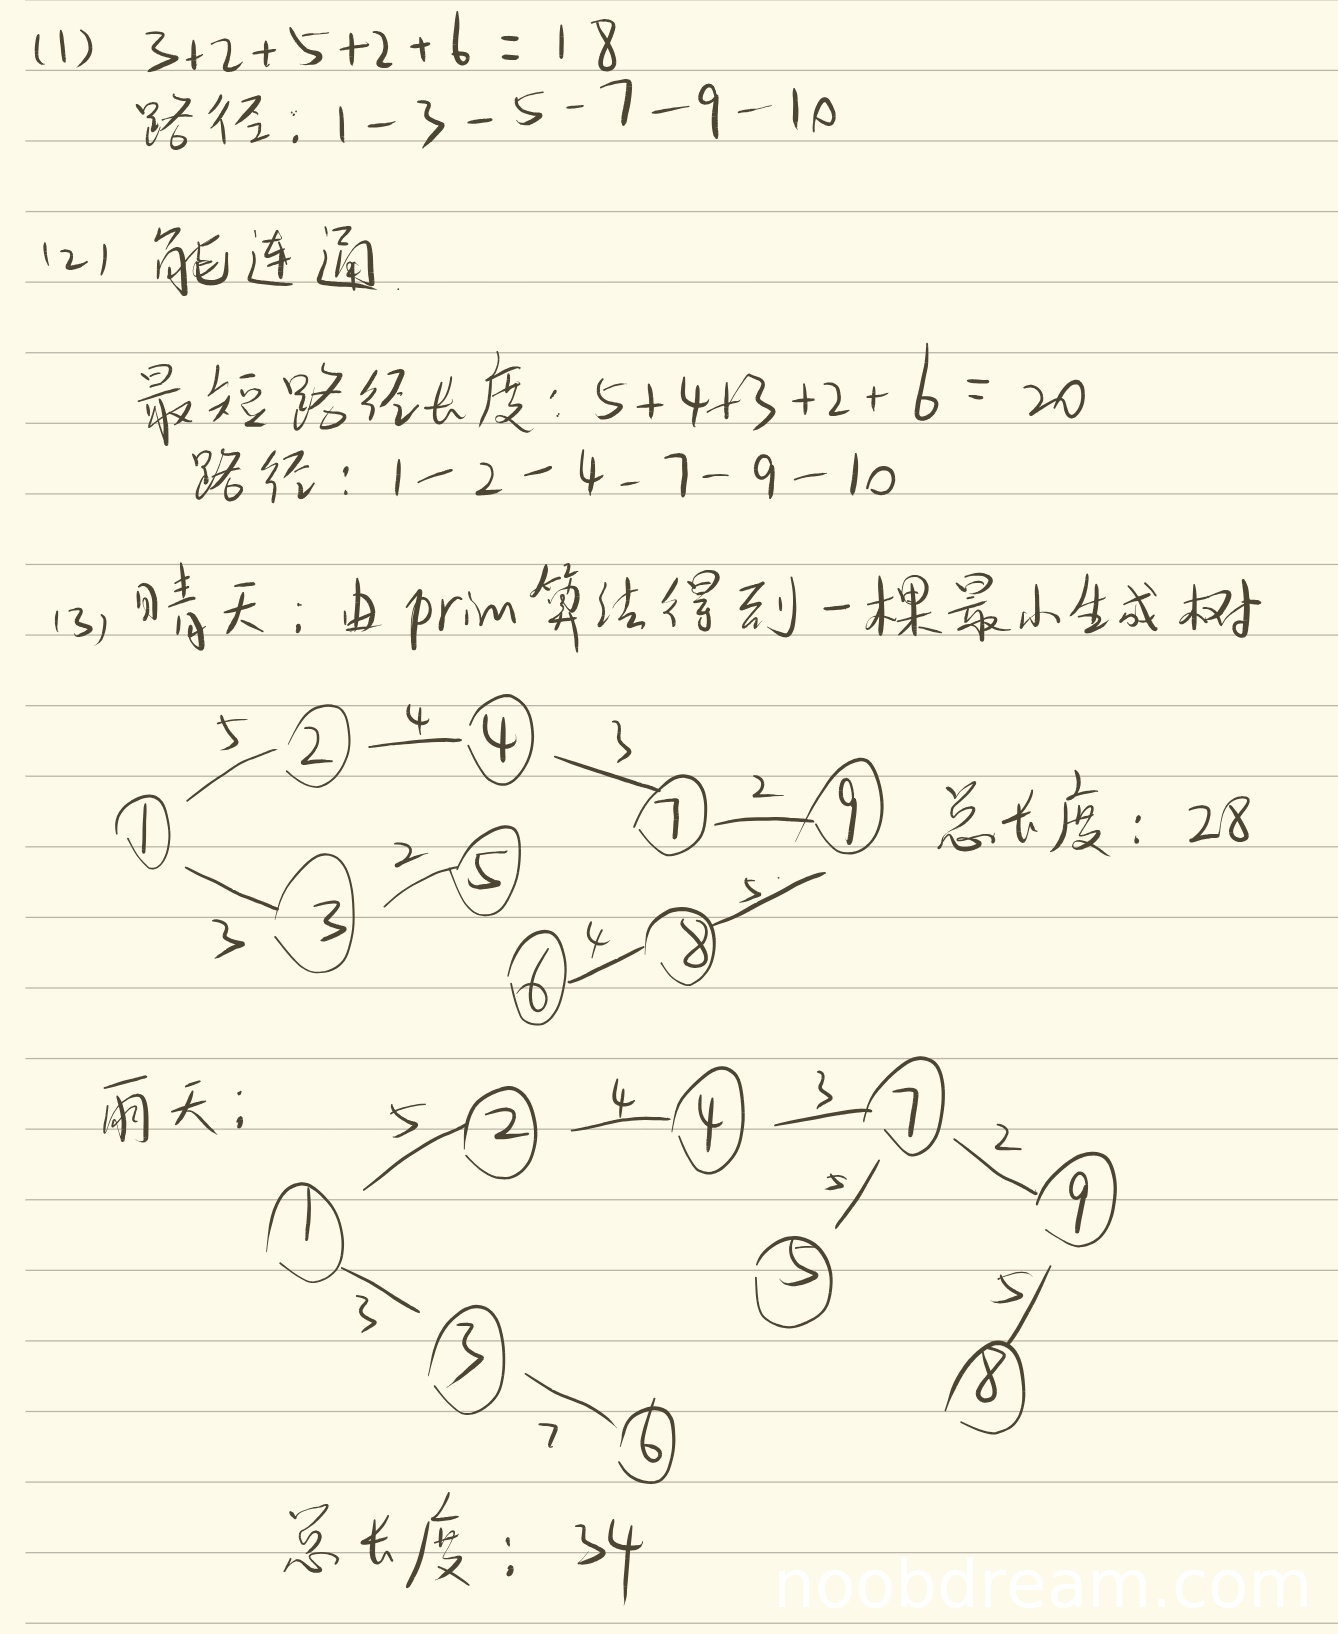 (1) 3+2+5+2+6=18
路径: 1-3-5-7-9-10
(2) 能连通.
最短路径长度: 5+4+3+2+6=20
路径: 1-2-4-7-9-10
(3) 晴天: 由prim算法得到一棵最小生成树
5 2 4 4 3
1 7 2 9 总长度: 28
3 3 2 5
6 4 8 5
雨天: 5 2 4 4 3 7 2
1 5 5 9
3 3 5 8
7 6
总长度: 34
noobdream.com